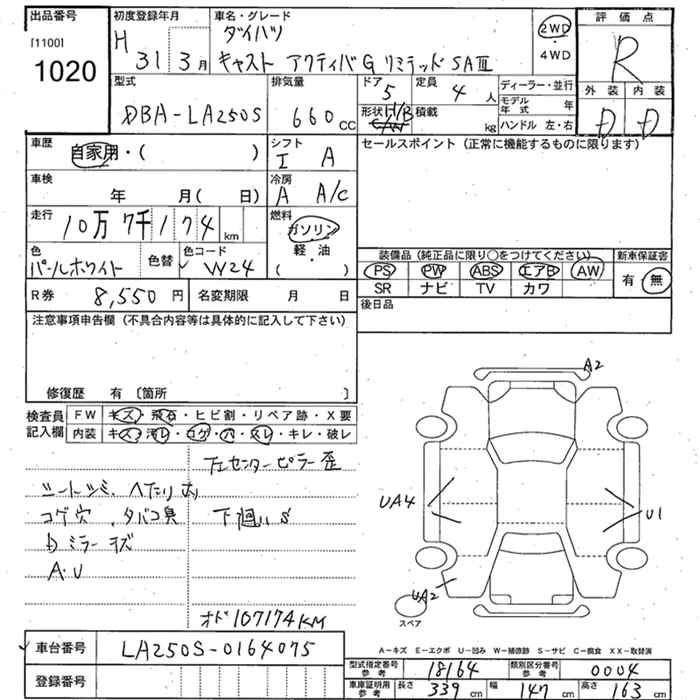 出品番号 初度登録年月 車名・グレード 評価点
[1100] H 31 3月 ダイハツ 2WD R
1020 キャスト アクティバG リミテッド SAⅢ 4WD
型式 排気量 ドア 定員 ディーラー・並行 外装 内装
DBA-LA250S 660cc 5 4人 モデル年式 年 D D
形状 H/B C/W 積載 kg ハンドル 左・右
車歴 自家用・( ) シフト I A セールスポイント(正常に機能するものに限ります)
車検 年 月(日) 冷房 A A/C
走行 10万7千174km 燃料 ガソリン
軽・油
( )
色 パールホワイト 色替 色コード W24
装備品(純正品に限り○をつけてください) 新車保証書
PS PW ABS エアB AW 有 無
SR ナビ TV カワ
R券 8,550円 名変期限 月 日 後日品
注意事項申告欄(不具合内容等は具体的に記入して下さい)
修復歴 有〔箇所 〕
検査員記入欄 FW キズ・飛石・ヒビ割・リペア跡・X要
内装 キズ・汚レ・コゲ・穴・スレ・キレ・破レ
センターピラー歪
シートシミ、ヘたり有
コゲ穴、タバコ臭 下廻りS
ミラーキズ
A・U
オド 107174KM
A2
UA4
U1
UA2
スペア
A-キズ E-エクボ U-凹み W-補修跡 S-サビ C-腐食 XX-取替済
車台番号 LA250S-0164075
登録番号
型式指定番号参考 18164 類別区分番号参考 0004
車庫証明用参考 長さ 339cm 幅 147cm 高さ 163cm